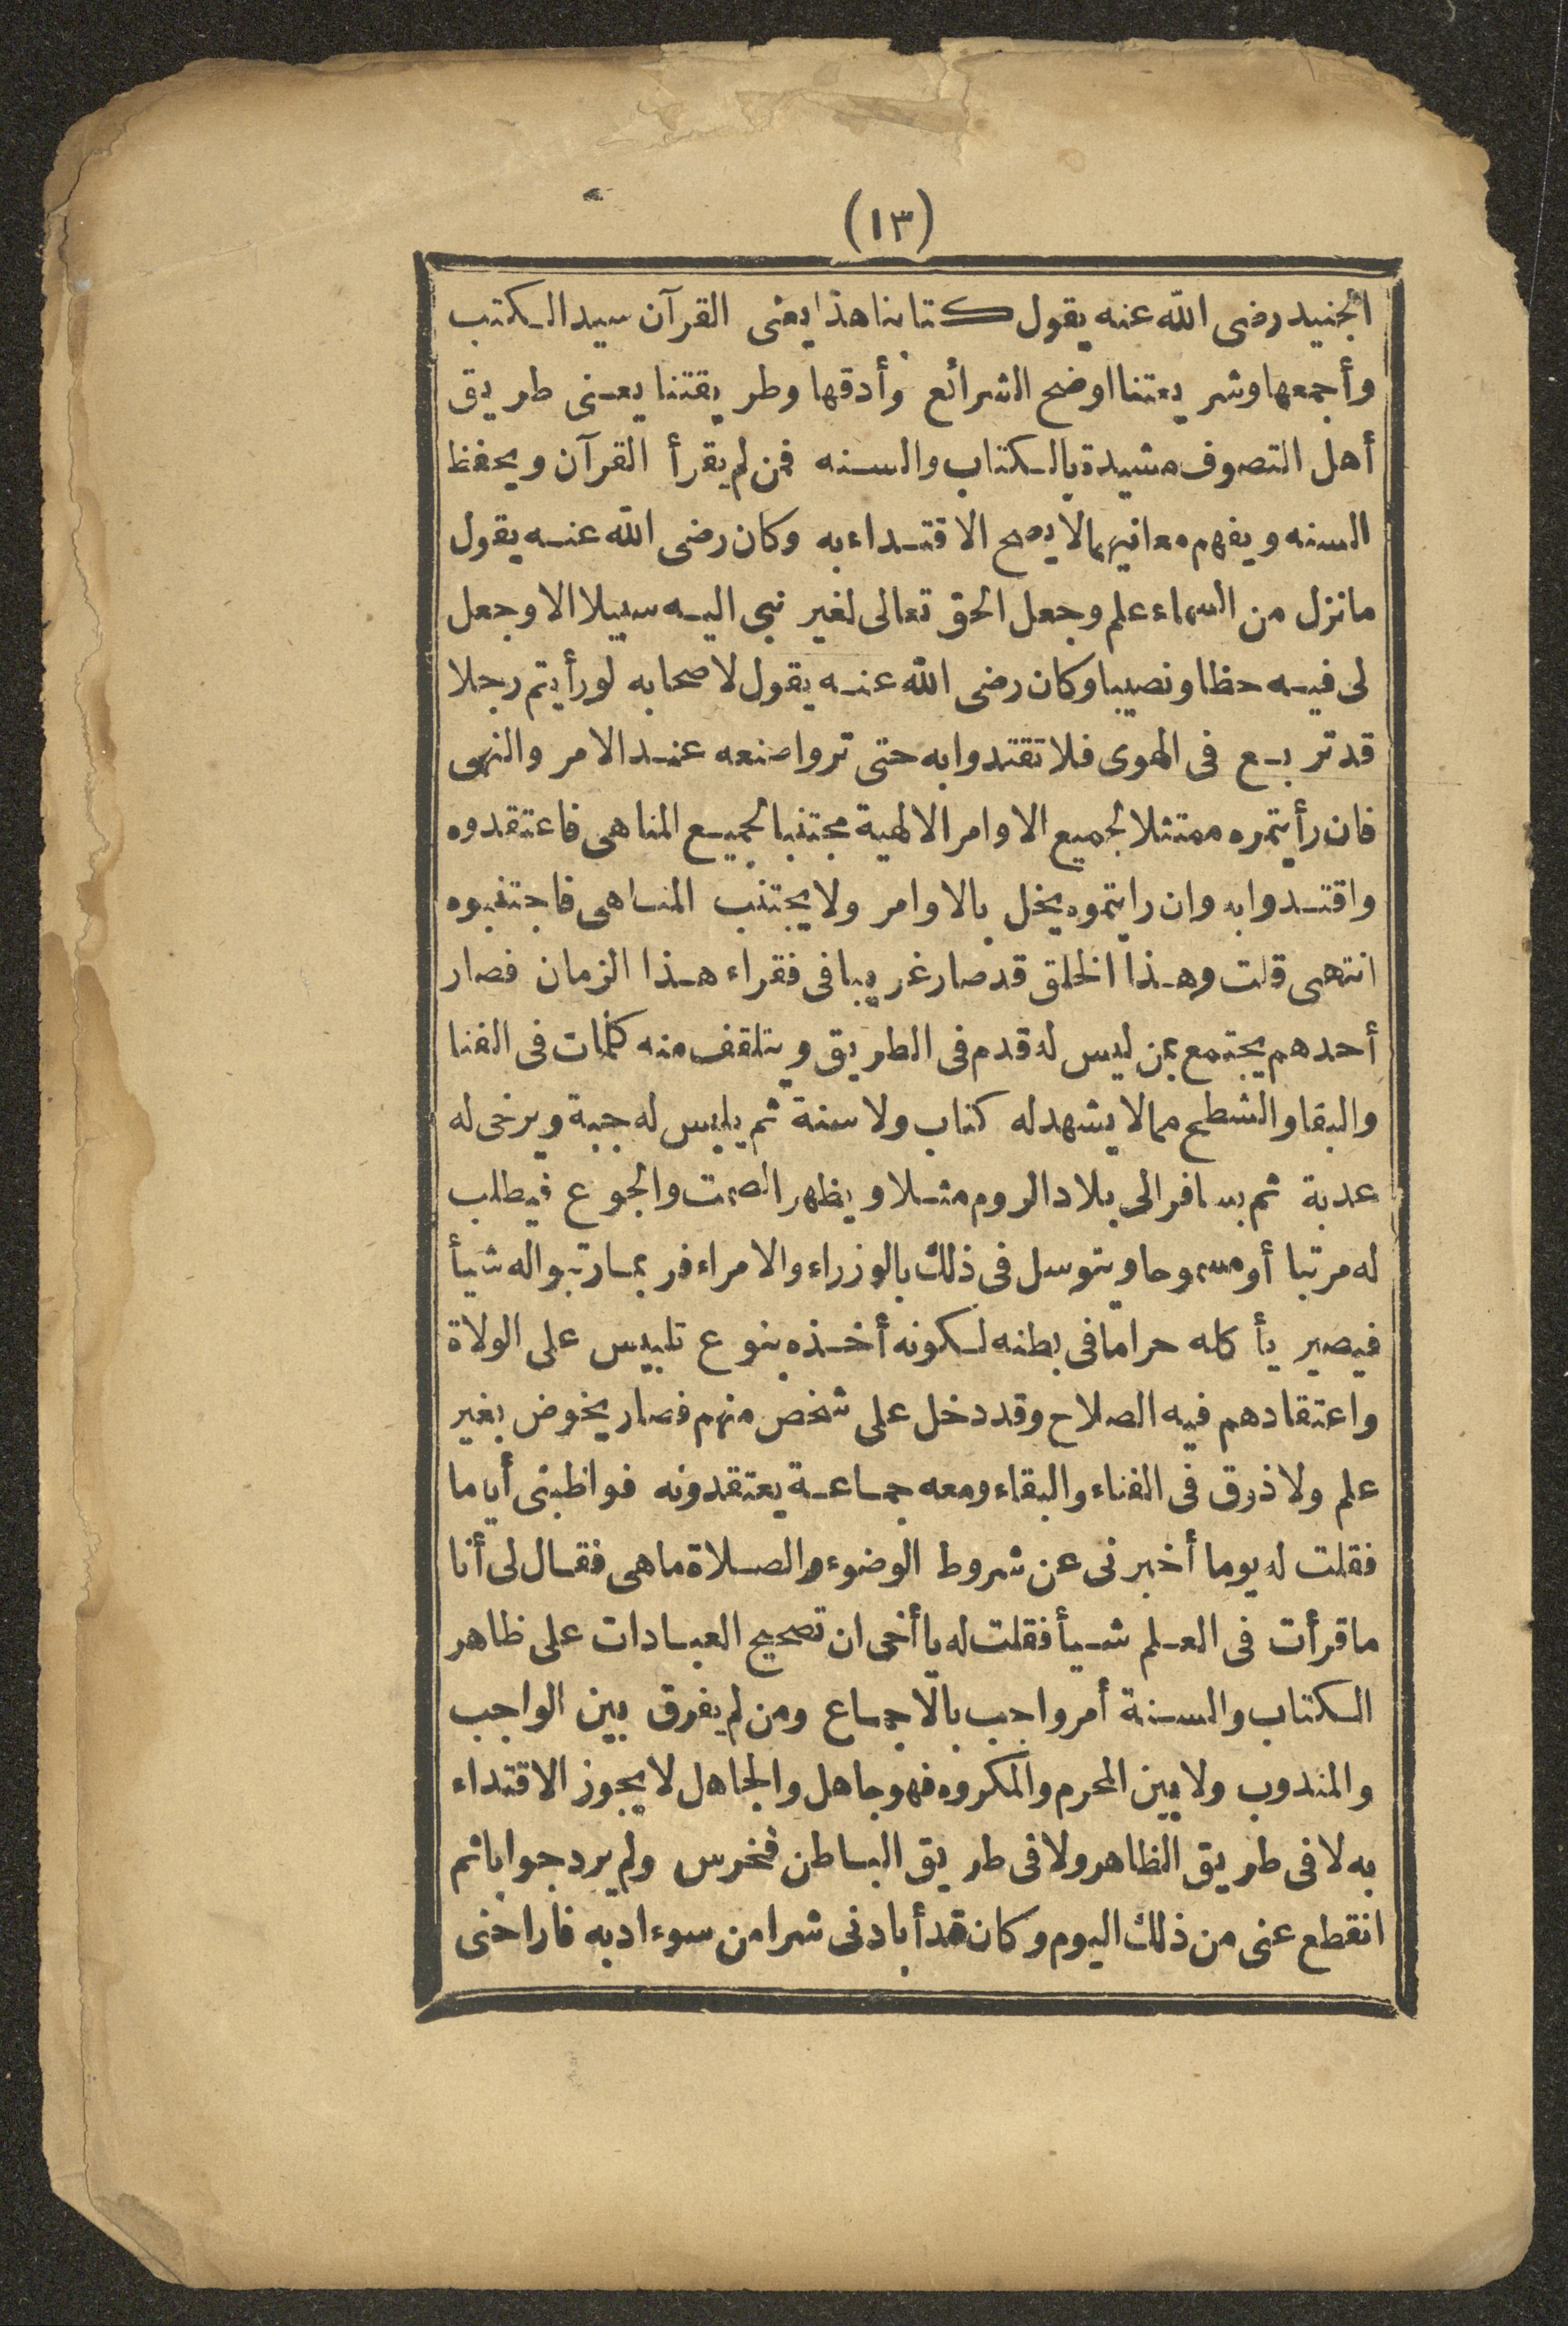 (١٣)
الجنيد رضى الله عنه يقول كتابنا هذا يعنى القرآن سيد الكتب
وأجمعها وشريعتنا اوضح الشرائع وأدقها وطريقتنا يعنى طريق
أهل التصوف مشيدة بالكتاب والسنه فمن لم يقرأ القرآن ويحفظ
السنه ويفهم معانيهما لا يصح الاقتداء به وكان رضى الله عنه يقول
ما نزل من السماء علم وجعل الحق تعالى لغير نبى اليه سبيلا الا وجعل
لى فيه حظا ونصيبا وكان رضى الله عنه يقول لاصحابه لو رأيتم رجلا
قد تربع فى الهوى فلا تقتدوا به حتى تروا صنعه عند الامر والنهى
فان رأيتموه ممتثلا لجميع الاوامر الالهية مجتنبا لجميع المناهى فاعتقدوه
واقتدوا به وان رايتموه يخل بالاوامر ولا يجتنب المناهى فاجتنبوه
انتهى قلت وهذا الخلق قد صار غريبا فى فقراء هذا الزمان فصار
أحدهم يجتمع بمن ليس له قدم فى الطريق ويتلقف منه كلمات فى الفنا
والبقا والشطح مما لا يشهد له كتاب ولا سنة ثم يلبس له جبة ويرخى له
عدبة ثم يسافر الى بلاد الروم مثلا ويظهر الصمت والجوع فيطلب
له مرتبا أو مسموحا ويتوسل فى ذلك بالوزراء والامراء فربما رتبوا له شيأ
فيصير يأكله حراما فى بطنه لكونه أخذه بنوع تلبيس على الولاة
واعتقادهم فيه الصلاح وقد دخل على شخص منهم فصار يخوض بغير
علم ولا ذوق فى الفناء والبقاء ومعه جماعة يعتقدونه فواظبنى أياما
فقلت له يوما أخبرنى عن شروط الوضوء والصلاة ماهى فقال لى أنا
ما قرأت فى العلم شيأ فقلت له يا أخى ان تصحيح العبادات على ظاهر
الكتاب والسنة أمر واجب بالاجماع ومن لم يفرق بين الواجب
والمندوب ولا بين المحرم والمكروه فهو جاهل والجاهل لا يجوز الاقتداء
به لا فى طريق الظاهر ولا فى طريق الباطن فخرس ولم يرد جوابا ثم
انقطع عنى من ذلك اليوم وكان قد أبادنى شرا من سوء ادبه فاراحنى